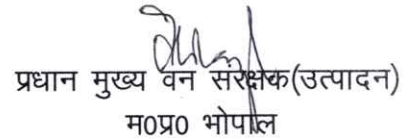 प्रधान मुख्य वन संरक्षक(उत्पादन)
म०प्र० भोपाल